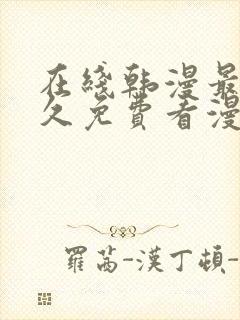 在綫韩漫最
久免費看漫
羅茜-漢丁頓-